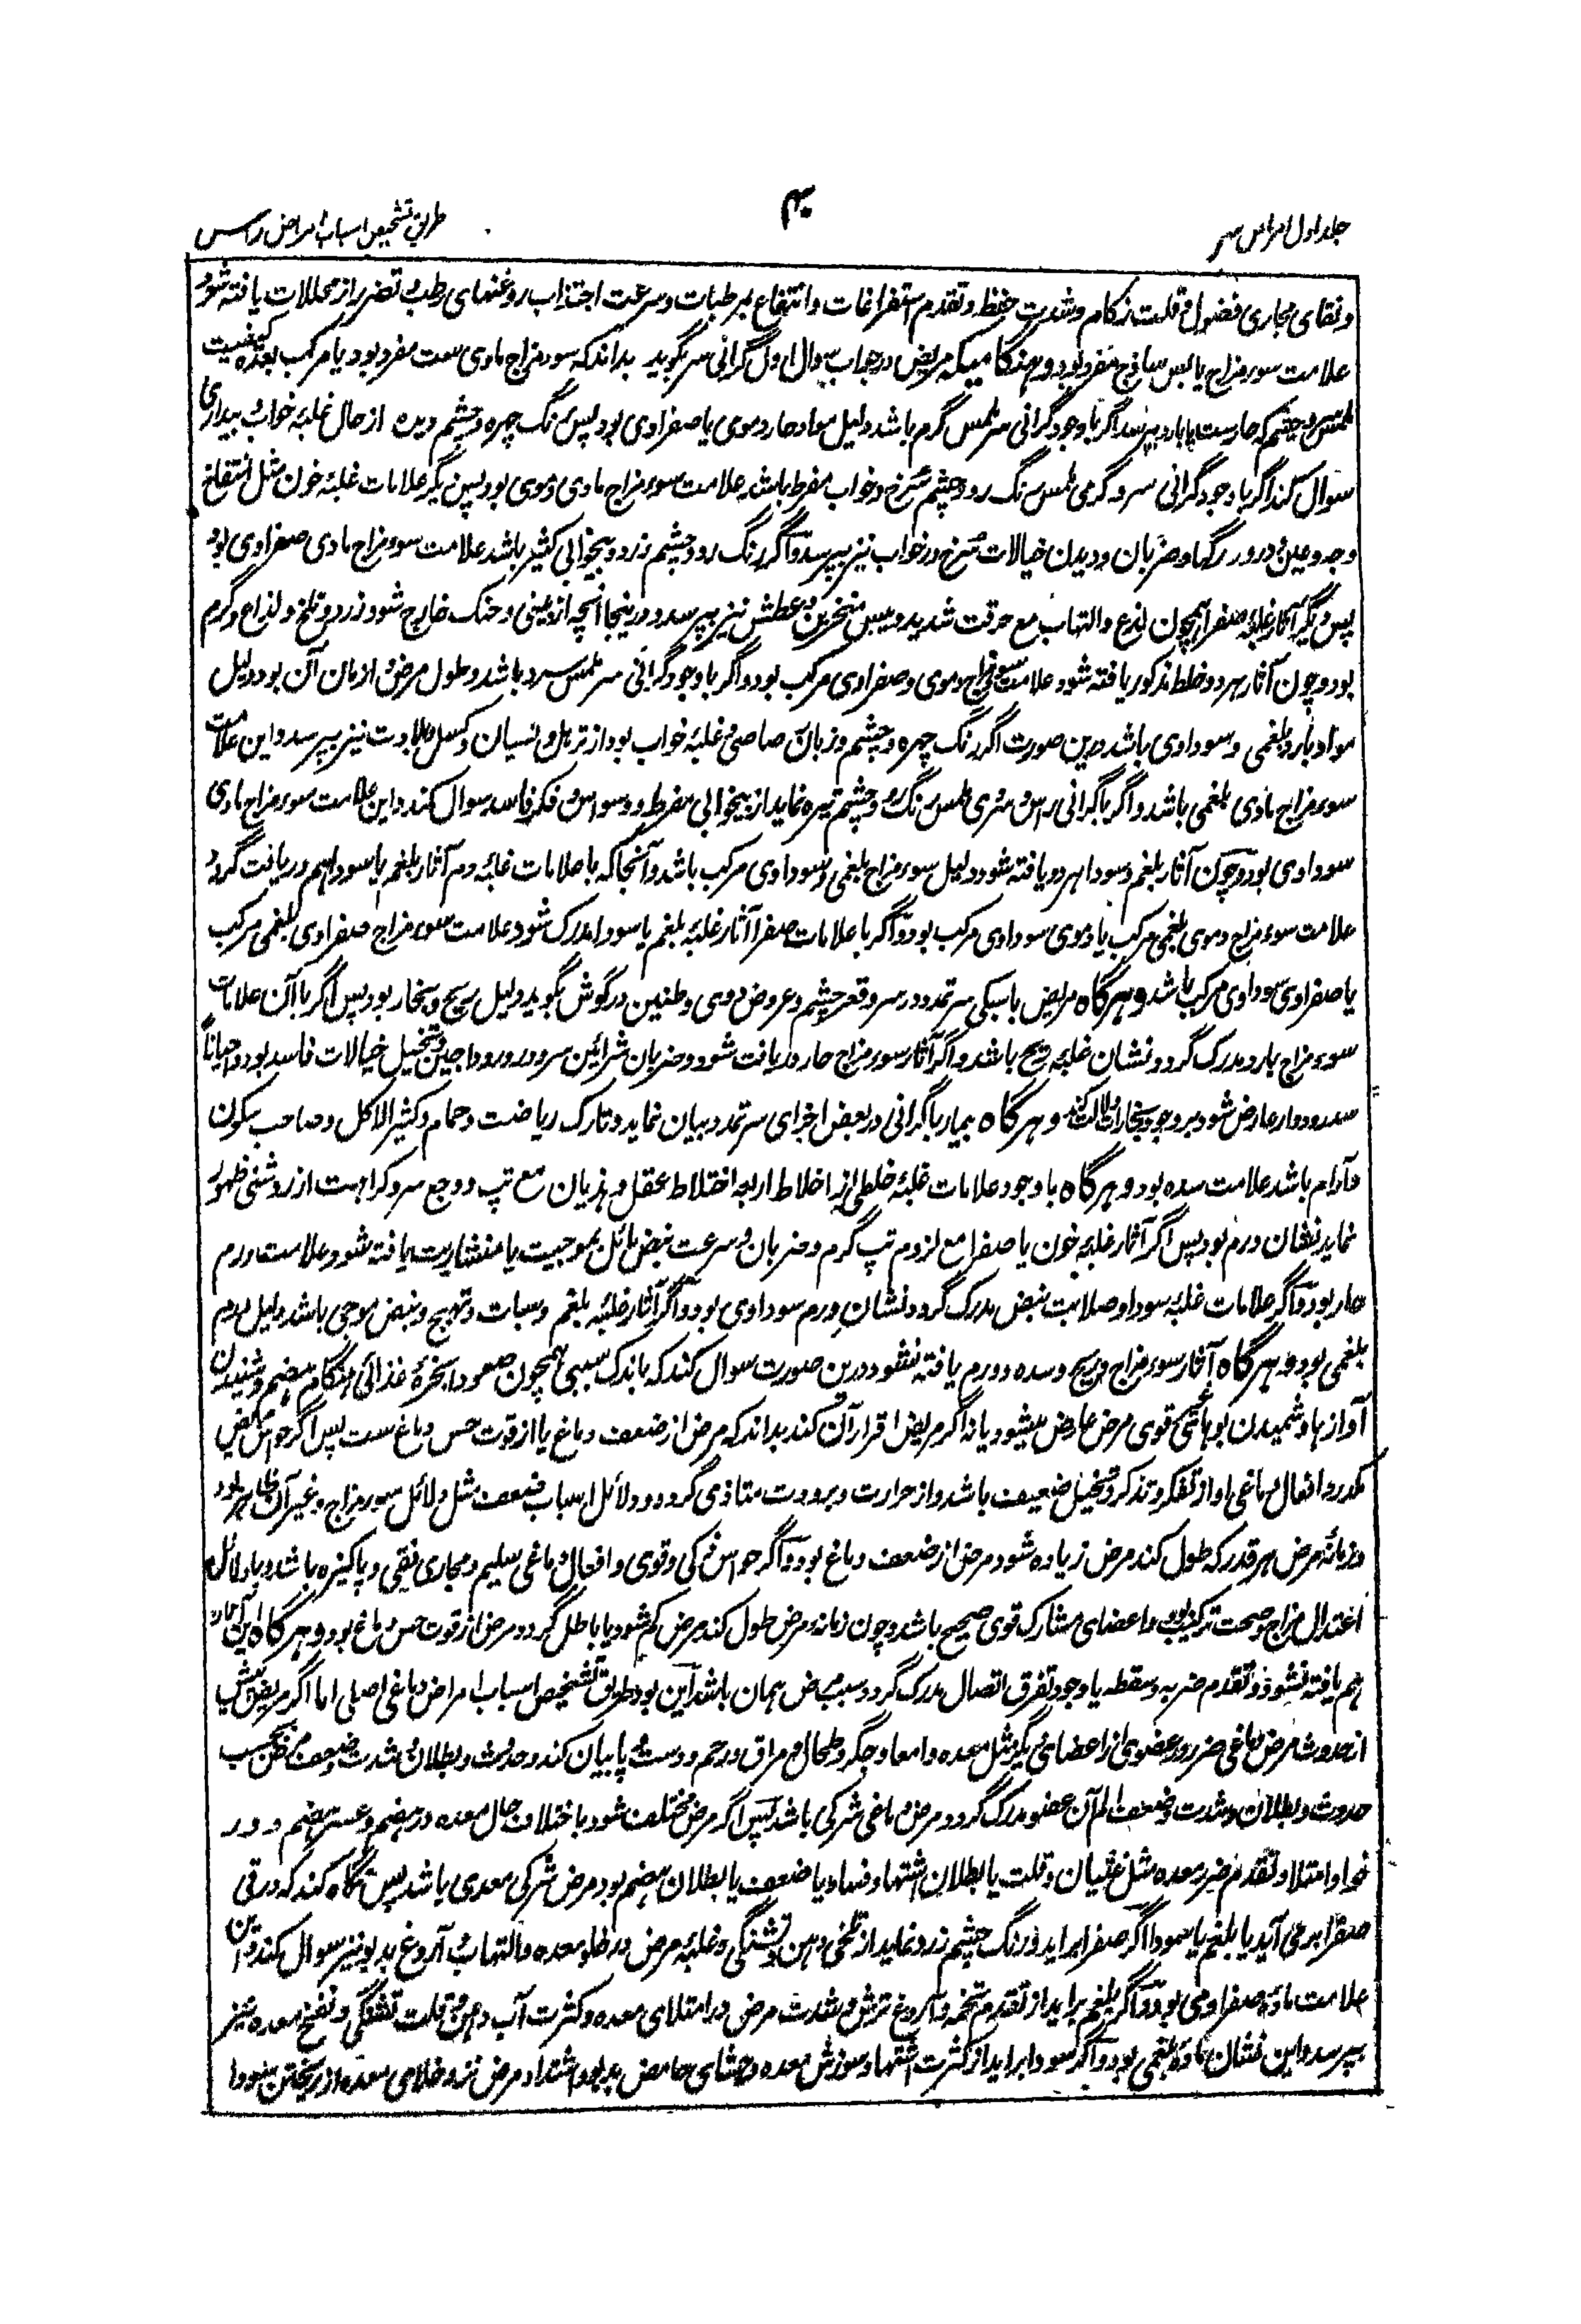 جلد اول امراض سر
۴
طریق تشخیص اسباب امراض راس
و نقای مجاری فضول و قلت زکام و شدت حفظ و تقدم استفراغات و انتفاع بمرطبات و سرعت اجتذاب روغنهای رطب و تضرر از محللات یافته شود
علامت سوء مزاج یابس ساذج مفرد بود و هنگامیکه مریض در جواب سوال اول گرانی سر بگوید بداند که سوء مزاج مادی ست مفرد بود یا مرکب بعده کیفیت
ملمس سر و چشم که حارست یا بارد بپرسد اگر با وجود گرانی سر ملمس گرم باشد دلیل مواد حار دموی یا صفراوی بود پس رنگ چهره و چشم دیده از حال غلبهٔ خواب و بیداری
سوال کند اگر با وجود گرانی سر و گرمی ملمس رنگ رو و چشم سرخ و خواب مفرط باشد علامت سوء مزاج مادی دموی بود پس دیگر علامات غلبهٔ خون مثل انتفاخ
وجه و عین و درور رگها و ضربان و دیدن خیالات سرخ در خواب نیز بپرسد و اگر رنگ رو و چشم زرد و بیخوابی کثیر باشد علامت سوء مزاج مادی صفراوی بود
پس دیگر آثار غلبهٔ صفرا همچون لذع و التهاب مع حرقت شدید و یبس منخرین و عطش نیز بپرسد و درینجا آنچه از بینی و حنک خارج شود زرد و تلخ و لذاع و گرم
بود و چون آثار هر دو خلط مذکور یافته شود علامت سوء مزاج دموی و صفراوی مرکب بود و اگر با وجود گرانی سر ملمس سرد باشد و طول مرض و ازمان آن بود دلیل
مواد بارد بلغمی و سوداوی باشد درین صورت اگر رنگ چهره و چشم و زبان صاصی و غلبهٔ خواب بود از ترهل و نسیان و کسل و بلادت نیز بپرسد و این علامت
سوء مزاج مادی بلغمی باشد و اگر با گرانی راس و سردی ملمس رنگ رو و چشم تیره نماید از بیخوابی مفرط و وسواس و فکر فاسد سوال کند و این علامت سوء مزاج مادی
سوداوی بود و چون آثار بلغم و سودا هر دو یافته شود دلیل سوء مزاج بلغمی و سوداوی مرکب باشد و آنجا که با علامات غلبهٔ دم آثار بلغم یا سودا هم دریافت گردد
علامت سوء مزاج دموی بلغمی مرکب یا دموی سوداوی مرکب بود و اگر با علامات صفرا آثار غلبهٔ بلغم یا سودا مدرک شود علامت سوء مزاج صفراوی بلغمی مرکب
یا صفراوی سوداوی مرکب باشد و هرگاه مریض با سبکی سر تمدد در سر و قعر چشم و عروض دوی و طنین در گوش بگوید دلیل ریح و بخار بود پس اگر با آن علامات
سوء مزاج بارد مدرک گردد نشان غلبهٔ ریح باشد و اگر آثار سوء مزاج حار دریافت شود و ضربان شرائین سر و درور وداجین و تخیل خیالات فاسد بود و احیاناً
سدر و دوار عارض شود بر وجود بخارات دلالت کند و هرگاه بیمار با گرانی در بعض اجزای سر تمدد بیان نماید و تارک ریاضت و حمام و کثیر الاکل و صاحب سکون
و آرام باشد علامت سده بود و هرگاه با وجود علامات غلبهٔ خلطی از اخلاط اربعه اختلاط عقل و هذیان مع تپ و وجع سر و کراهت از روشنی ظهور
نماید نشان ورم بود پس اگر آثار غلبهٔ خون یا صفرا مع لزوم تپ گرم و ضربان و سرعت نبض مائل بموجیت یا منشاریت یافته شود علامت ورم
حار بود و اگر علامات غلبهٔ سودا و صلابت نبض مدرک گردد نشان ورم سوداوی بود و اگر آثار غلبهٔ بلغم و سبات و تهیج و نبض موجی باشد دلیل ورم
بلغمی بود و هرگاه آثار سوء مزاج و ریح و سده و ورم یافته نشود درین صورت سوال کند که باندک سببی همچون صعود ابخرهٔ غذائی هنگام هضم و شنیدن
آواز ها و شمیدن بوهای قوی مرض عارض میشود یا نه اگر مریض اقرار آن کند بداند که مرض از ضعف دماغ یا از قوت حس دماغ ست پس اگر حواس مریض
مکدر و افعال دماغی او از تفکر و تذکر و تخیل ضعیف باشد و از حرارت و برودت متاذی گردد و دلائل اسباب ضعف مثل دلائل سوء مزاج و غیر آن ظاهر بود
و زمانهٔ مرض هر قدر که طول کند مرض زیاده شود مرض از ضعف دماغ بود و اگر حواس ذکی و قوی و افعال دماغی سلیم و مجاری نقی و پاکیزه باشد و با دلائل
اعتدال مزاج و صحت ترکیب بود و اعضای مشارک قوی صحیح باشد و چون زمانه مرض طول کند مرض کم شود یا باطل گردد مرض از قوت حس دماغ بود و هرگاه این آثار
هم یافته نشود و تقدم ضربه و سقطه یا وجود تفرق اتصال مدرک گردد سبب مرض همان باشد این بود طریق تشخیص اسباب امراض دماغی اصلی اما اگر مریض پیش
از حدوث مرض دماغی ضرر عضوی از اعضای دیگر مثل معده و امعا و جگر و طحال و مراق و رحم و دست و پا بیان کند و حدوث و بطلان و شدت و ضعف مرض بحسب
حدوث و بطلان و شدت و ضعف الم آن عضو مدرک گردد مرض دماغی شرکی باشد پس اگر مرض مختلف شود باختلاف حال معده در هضم و عسر هضم و در
خوا و امتلا و تقدم ضرر معده مثل غثیان و قلت یا بطلان اشتها و فساد یا ضعف یا بطلان هضم بود مرض شرکی معدی باشد پس نگاه کند که در قی
صفرا بر می آید یا بلغم یا سودا اگر صفرا بر آید و رنگ چشم زرد نماید از تلخی دهن و تشنگی و غلبهٔ مرض در خلو معده و التهاب و آروغ بدبو نیز سوال کند و این
علامت مادهٔ صفراوی بود و اگر بلغم برآید از تقدم تخمه و آروغ ترش و شدت مرض در امتلای معده و کثرت آب دهن و قلت تشنگی و نفخ معده نیز
بپرسد و این نشان مادهٔ بلغمی بود و اگر سودا برآید از کثرت اشتها و سوزش معده و جشای حامض بدبو و اشتداد مرض نزد خلای معده از ریختن سودا